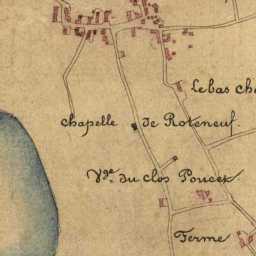 Le bas che
chapelle de Roteneuf.
Vge. du clos Poucet
Ferme